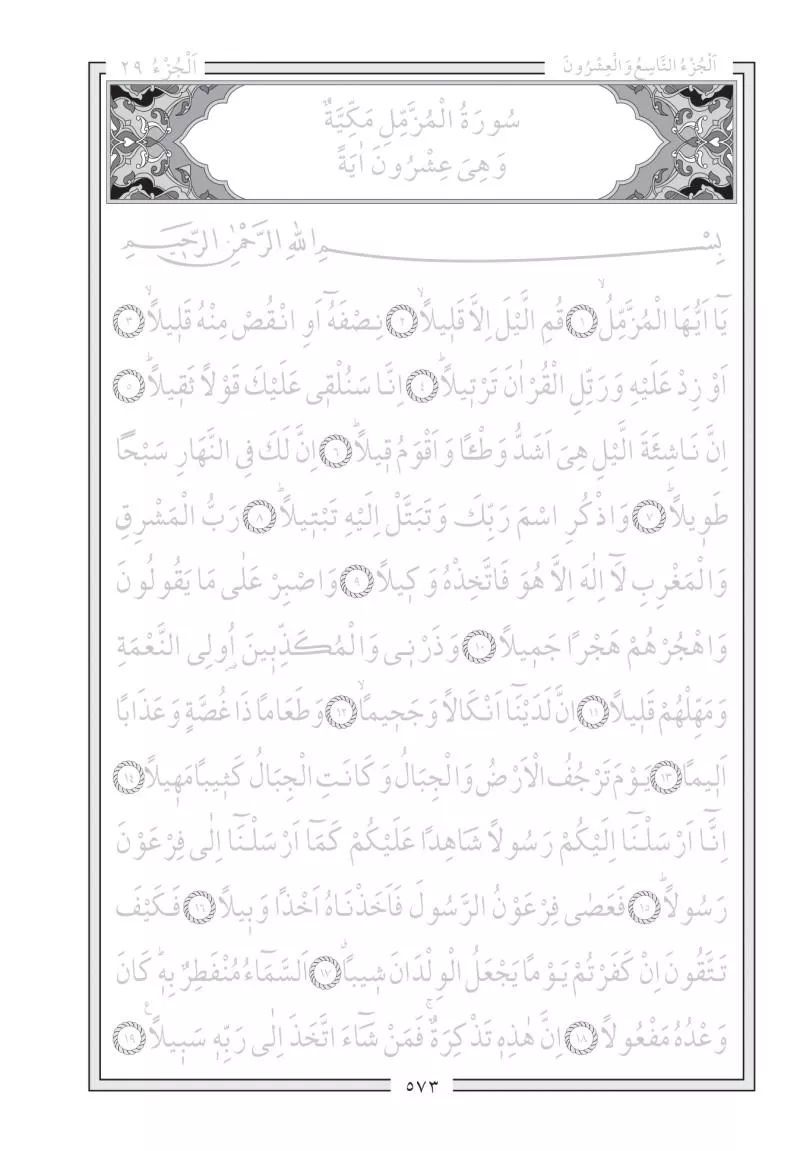 اَلْجُزْءُ التَّاسِعُ وَالْعِشْرُونَ
اَلْجُزْءُ ٢٩
سُورَةُ الْمُزَّمِّلِ مَكِّيَّةٌ
وَهِيَ عِشْرُونَ اٰيَةً
بِسْمِ اللهِ الرَّحْمٰنِ الرَّحٖيمِ
يَٓا اَيُّهَا الْمُزَّمِّلُۙ ﴿١﴾ قُمِ الَّيْلَ اِلَّا قَلٖيلاًۙ ﴿٢﴾ نِصْفَهُٓ اَوِ انْقُصْ مِنْهُ قَلٖيلاًۙ ﴿٣﴾
اَوْ زِدْ عَلَيْهِ وَرَتِّلِ الْقُرْاٰنَ تَرْتٖيلاًؕ ﴿٤﴾ اِنَّا سَنُلْقٖى عَلَيْكَ قَوْلاً ثَقٖيلاًؕ ﴿٥﴾
اِنَّ نَاشِئَةَ الَّيْلِ هِىَ اَشَدُّ وَطْـًٔا وَاَقْوَمُ قٖيلاًؕ ﴿٦﴾ اِنَّ لَكَ فِى النَّهَارِ سَبْحًا
طَوٖيلاًؕ ﴿٧﴾ وَاذْكُرِ اسْمَ رَبِّكَ وَتَبَتَّلْ اِلَيْهِ تَبْتٖيلاًؕ ﴿٨﴾ رَبُّ الْمَشْرِقِ
وَالْمَغْرِبِ لَٓا اِلٰهَ اِلَّا هُوَ فَاتَّخِذْهُ وَكٖيلاً ﴿٩﴾ وَاصْبِرْ عَلٰى مَا يَقُولُونَ
وَاهْجُرْهُمْ هَجْرًا جَمٖيلاً ﴿١٠﴾ وَذَرْنٖى وَالْمُكَذِّبٖينَ اُولِى النَّعْمَةِ
وَمَهِّلْهُمْ قَلٖيلاً ﴿١١﴾ اِنَّ لَدَيْنَٓا اَنْكَالاً وَجَحٖيمًاۙ ﴿١٢﴾ وَطَعَامًا ذَا غُصَّةٍ وَعَذَابًا
اَلٖيمًا ﴿١٣﴾ يَوْمَ تَرْجُفُ الْاَرْضُ وَالْجِبَالُ وَكَانَتِ الْجِبَالُ كَثٖيبًا مَهٖيلاً ﴿١٤﴾
اِنَّٓا اَرْسَلْنَٓا اِلَيْكُمْ رَسُولاً شَاهِدًا عَلَيْكُمْ كَمَٓا اَرْسَلْنَٓا اِلٰى فِرْعَوْنَ
رَسُولاًؕ ﴿١٥﴾ فَعَصٰى فِرْعَوْنُ الرَّسُولَ فَاَخَذْنَاهُ اَخْذًا وَبٖيلاً ﴿١٦﴾ فَكَيْفَ
تَتَّقُونَ اِنْ كَفَرْتُمْ يَوْمًا يَجْعَلُ الْوِلْدَانَ شٖيبًاؕ ﴿١٧﴾ اَلسَّمَٓاءُ مُنْفَطِرٌ بِهٖؕ كَانَ
وَعْدُهُ مَفْعُولاً ﴿١٨﴾ اِنَّ هٰذِهٖ تَذْكِرَةٌۚ فَمَنْ شَٓاءَ اتَّخَذَ اِلٰى رَبِّهٖ سَبٖيلاًࣖ ﴿١٩﴾
٥٧٣